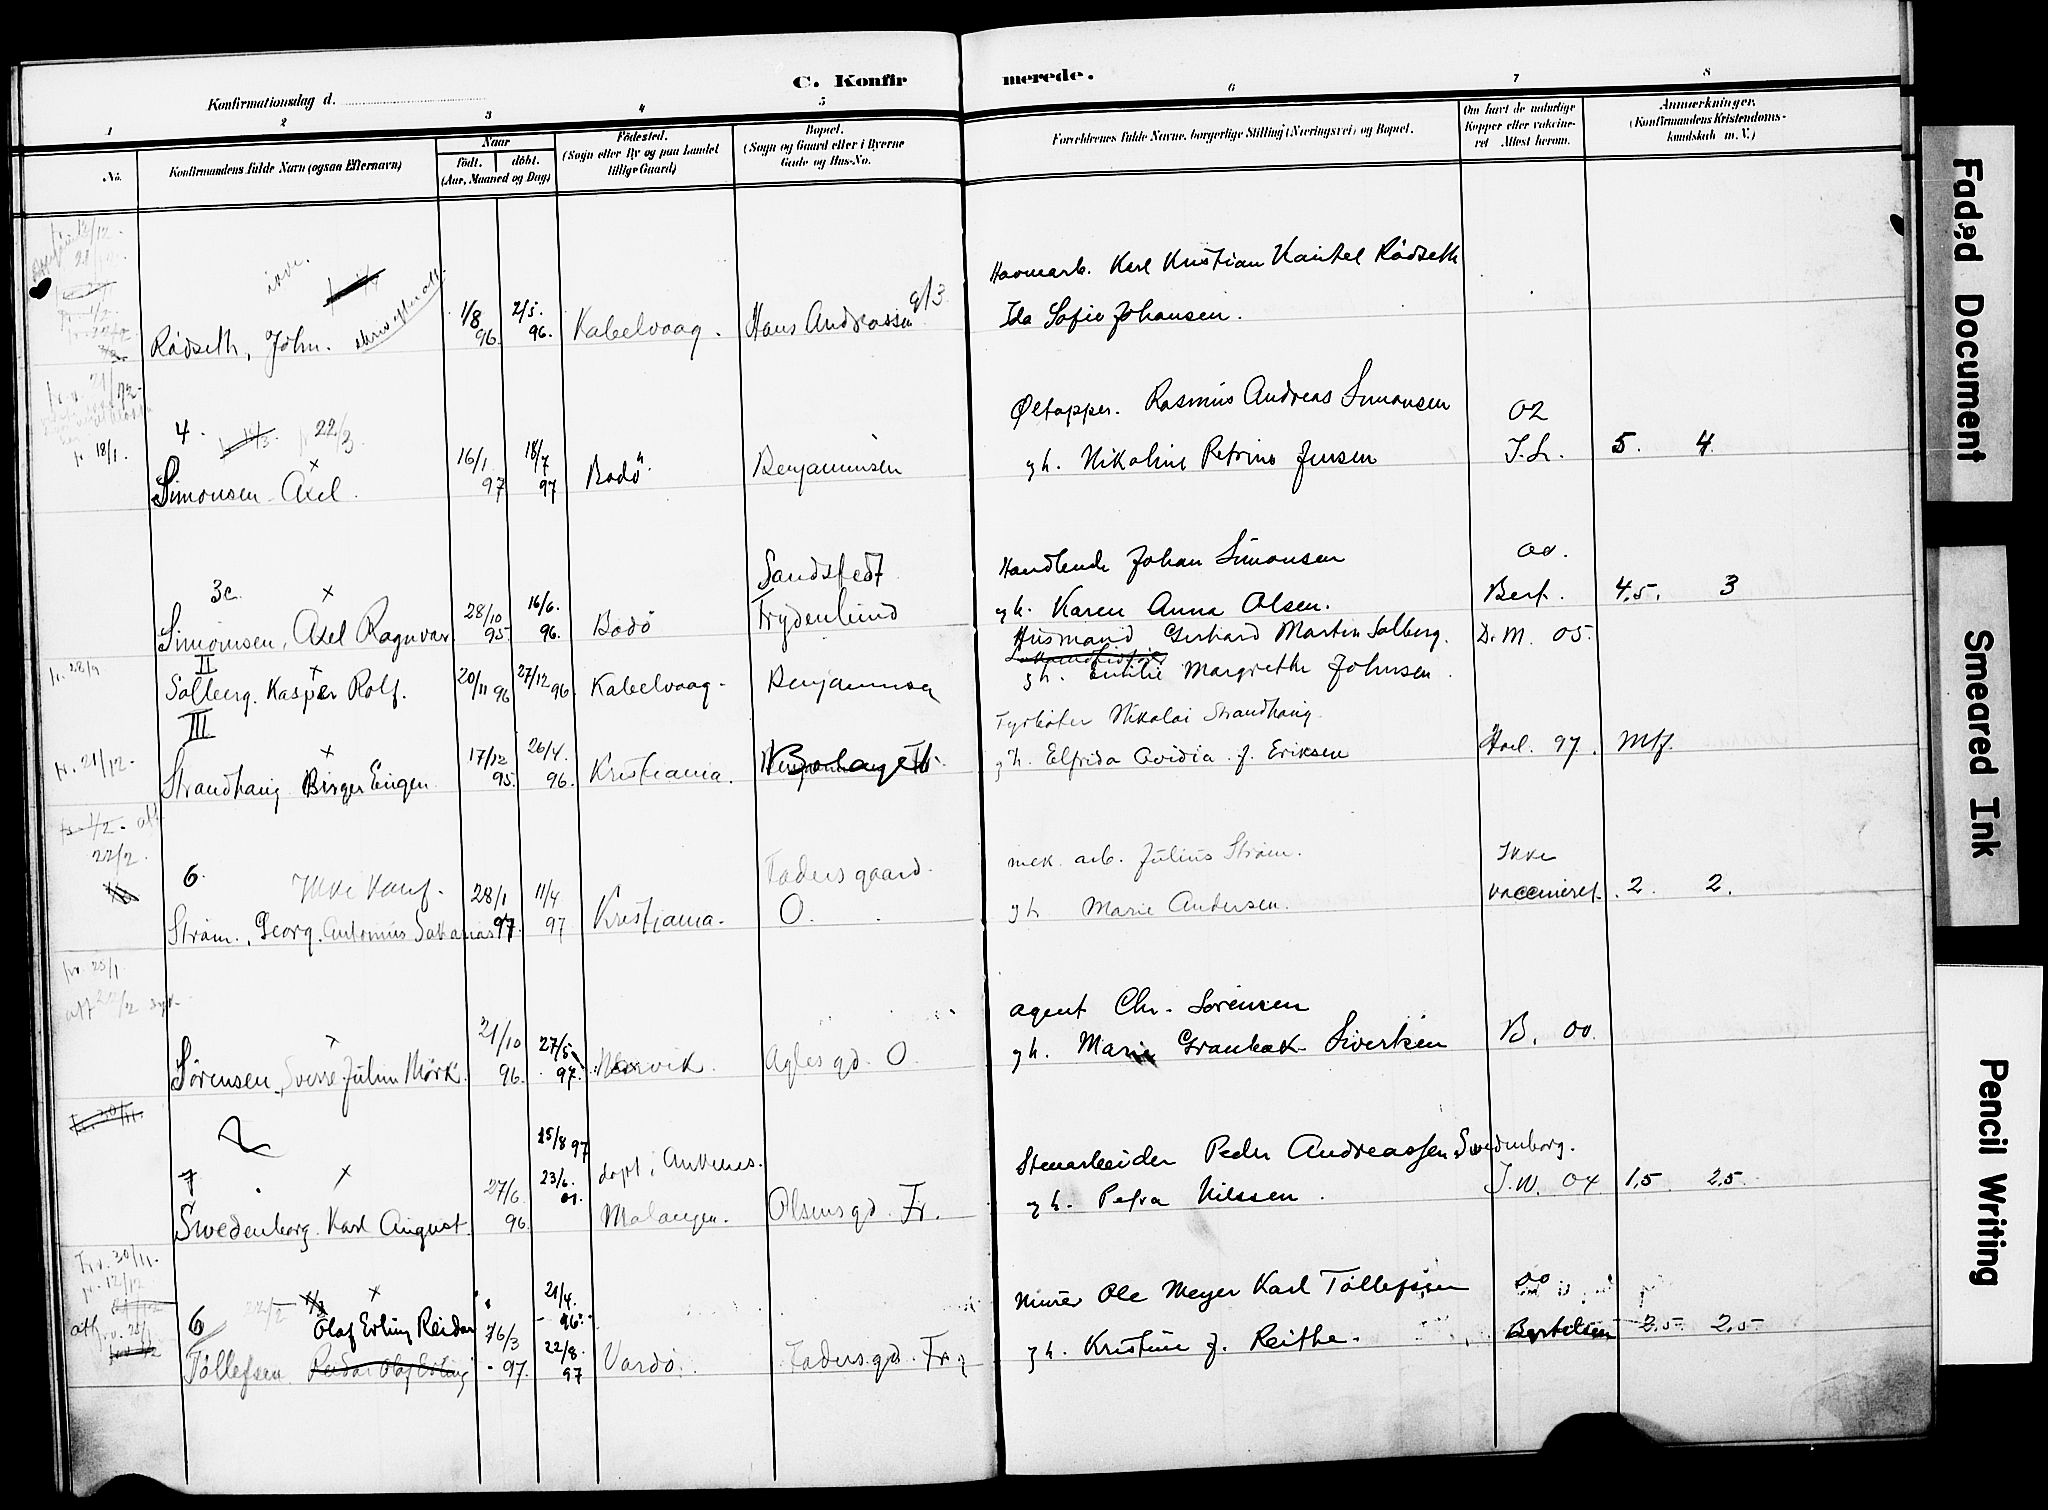 C. Konfirmerede.
Konfirmationsdag d.
1 2 3 4 5 6 7 8
No.
Konfirmandens fulde Navn (ogsaa Efternavn)
Naar
født. døbt.
(Aar, Maaned og Dag)
Fødested.
(Sogn eller By og paa Landet
tillige Gaard)
Bopæl.
(Sogn og Gaard eller i Byerne
Gade og Hus-No.
Forældrenes fulde Navne, borgerlige Stilling (Næringsvei) og Bopæl.
Om havt de naturlige
Kopper eller vaccine-
ret Attest herom.
Anmærkninger,
(Konfirmandens Kristendoms-
kundskab m. V.)
Havnearb. Karl Kristian Rådseth
Rådseth, John. 1/8 96. 2/5. 96. Kabelvaag. Hans Andreassen
Ida Sofie Johansen.
4. 22/3
Øltapper. Rasmus Andreas Simonsen 02
18/1.
Simonsen Axel. 16/1. 97 18/7 97 Bodö. Benjaminsen
gh. Nikoline Petrine Jensen J.L. 5. 4.
3c. x
Sandsted
Handlende Johan Simonsen 00.
Simonsen, Axel Ragnvar 28/10 95. 16/6. 96. Bodö Frydenlund
gh. Karen Anna Olsen. Bert. 4.5. 3
II x
Husmand Gerhard Martin Solberg. D.M. 05.
28/9
Solberg. Kasper Rolf. 20/11 96 27/12 96. Kabelvaag. Benjaminsen
gh. Emilie Margrethe Johnsen.
III x
Fyrbøter Nikolai Strandhaug
21/12.
Strandhaug Birger Eugen 17/12 95. 26/4. 96. Kristiania. Bolaget
gh. Elfrida Ovidia f. Eriksen Hoel. 97. Mtf.
22/2.
6. Ikke konf.
mek. arb. Julius Strøm. Ikke
Strøm, Georg. Antonius 28/1 97 11/4 97 Kristiania. Fadersgaard. O.
gh Marie Andersen. vaccineret. 2. 2.
25/1.
x
agent Chr. Sørensen
Sørensen, Sverre Julius Mørk. 21/10 96. 27/5 97. Narvik. Aglesgd. O.
gh. Marie Grønbæk Sivertsen B. 00.
7 x
15/8 97
Stenarbeider Peder Andreassen Swedenborg.
døpt i Ankenes.
Swedenborg. Karl August. 27/6 96. 23/6. 01. Malangen. Olsensgd. Fr.
gh. Petra Nilssen. J.W. 04 1.5 2.5
30/11.
12/12
6 x
Olaf Erling Reidar
Murer Ole Meyer Karl Tollefsen 00
21/4. 96.
Tollefsen Reidar Olaf Erling 26/3 97. 22/8. 97 Vardö. Fadersgd. Fr.
gh. Kristine f. Reithe. Bertelsen 2.5 2.5
Faded Document
Smeared Ink
Pencil Writing